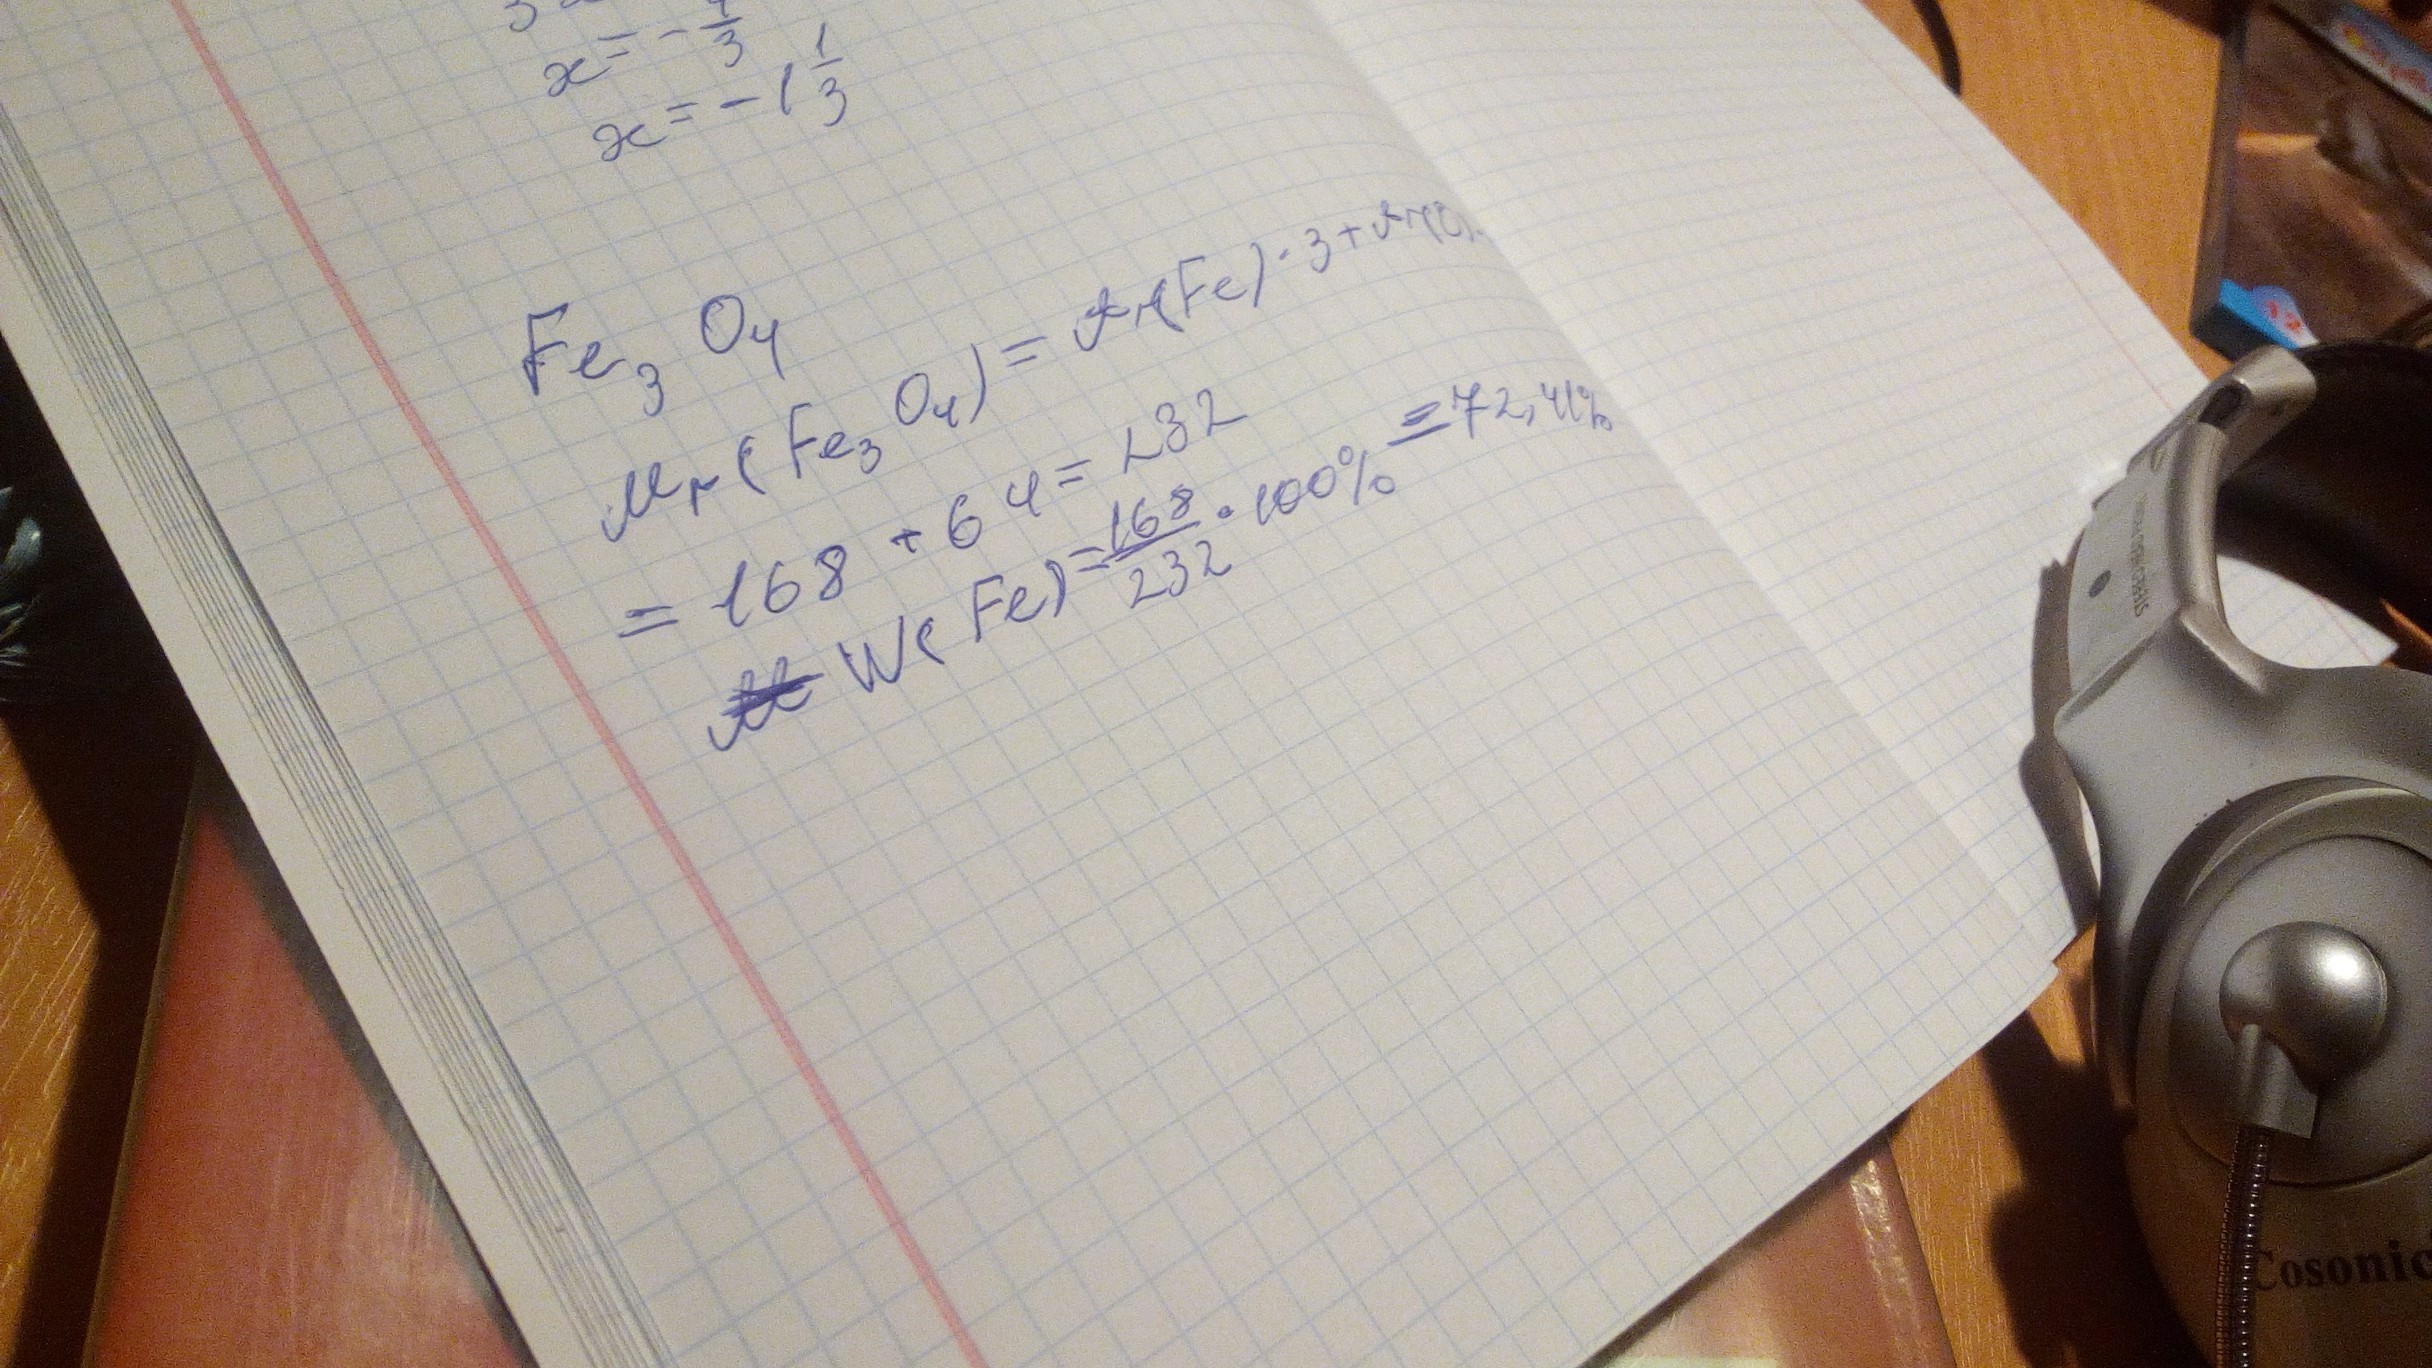 x = - 4/3
x = - 1 1/3
Fe3 O4
Mr (Fe3 O4) = Ar(Fe) · 3 + Ar(O) ·
= 168 + 64 = 232
W(Fe) = 168/232 · 100% = 72,41%
Cosonic